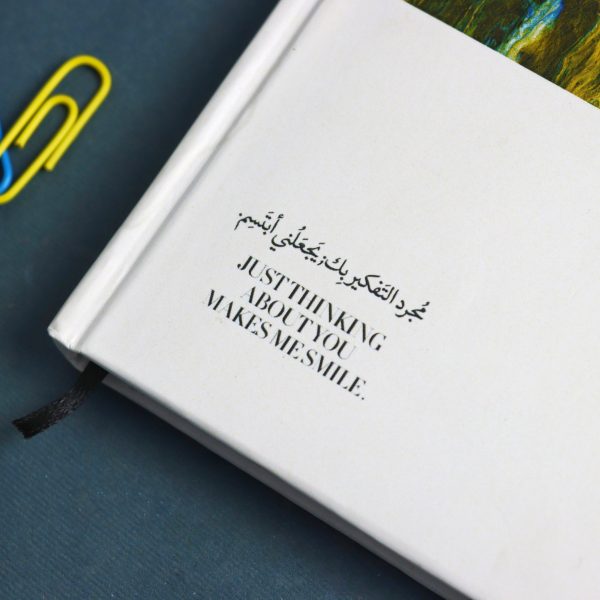 مُجرد التَفكير بك، يَجعَلُني أبتَسِم.
JUST THINKING
ABOUT YOU
MAKES ME SMILE.